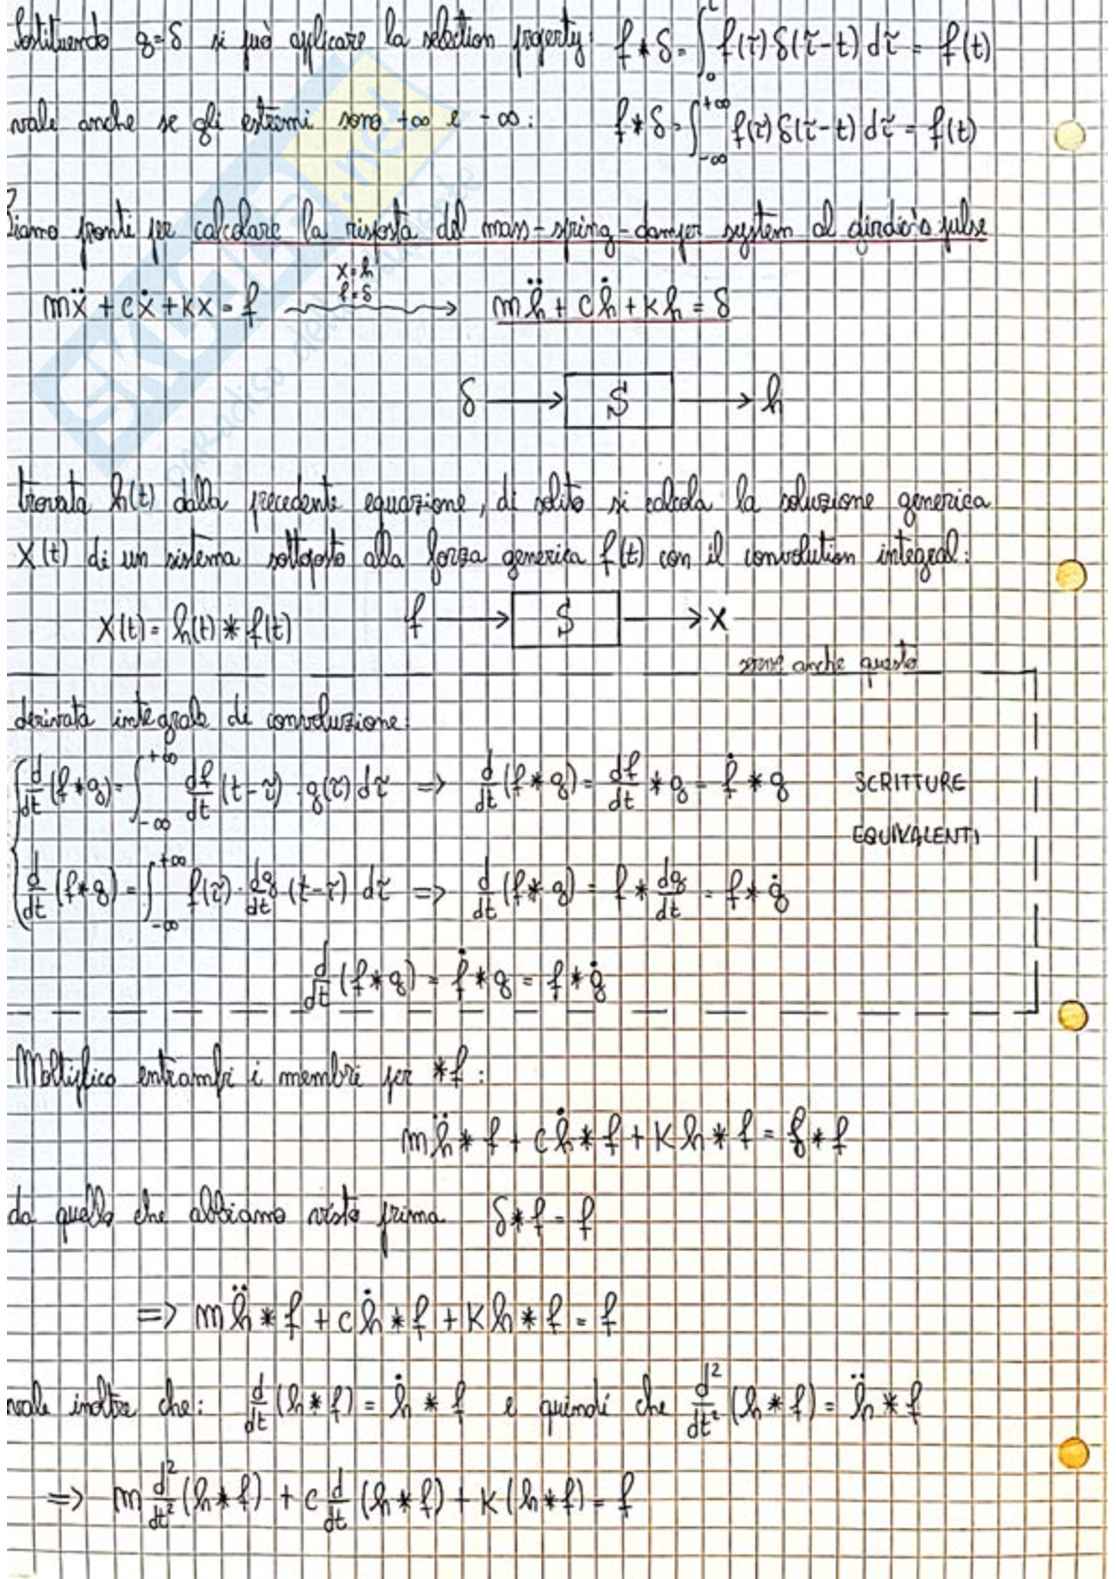 Sostituendo g=δ si può applicare la selection property: f*δ = ∫₀ᵗ f(τ) δ(τ-t) dτ = f(t)
vale anche se gli estremi sono +∞ e -∞: f*δ = ∫₋∞⁺∞ f(τ) δ(τ-t) dτ = f(t)
Siamo pronti per calcolare la risposta del mass-spring-damper system al dirdic's pulse
x=h
f=δ
mẍ + cẋ + kx = f → mḧ + cḣ + kh = δ
δ → S → h
trovata h(t) dalla precedente equazione, di solito si calcola la soluzione generica
x(t) di un sistema sottoposto alla forza generica f(t) con il convolution integral:
x(t) = h(t) * f(t) f → S → x
serve anche questo
derivata integrale di convoluzione:
d/dt (f*g) = ∫₋∞⁺∞ df/dt (t-τ) · g(τ) dτ => d/dt (f*g) = df/dt * g = ḟ * g SCRITTURE
EQUIVALENTI
d/dt (f*g) = ∫₋∞⁺∞ f(τ) · dg/dt (t-τ) dτ => d/dt (f*g) = f * dg/dt = f * ġ
d/dt (f*g) = ḟ * g = f * ġ
Moltiplico entrambi i membri per *f:
mḧ * f + cḣ * f + kh * f = δ * f
da quello che abbiamo visto prima δ*f = f
=> mḧ * f + cḣ * f + kh * f = f
vale inoltre che: d/dt (h*f) = ḣ * f e quindi che d²/dt² (h*f) = ḧ * f
=> m d²/dt² (h*f) + c d/dt (h*f) + k (h*f) = f
SKUOLA.net